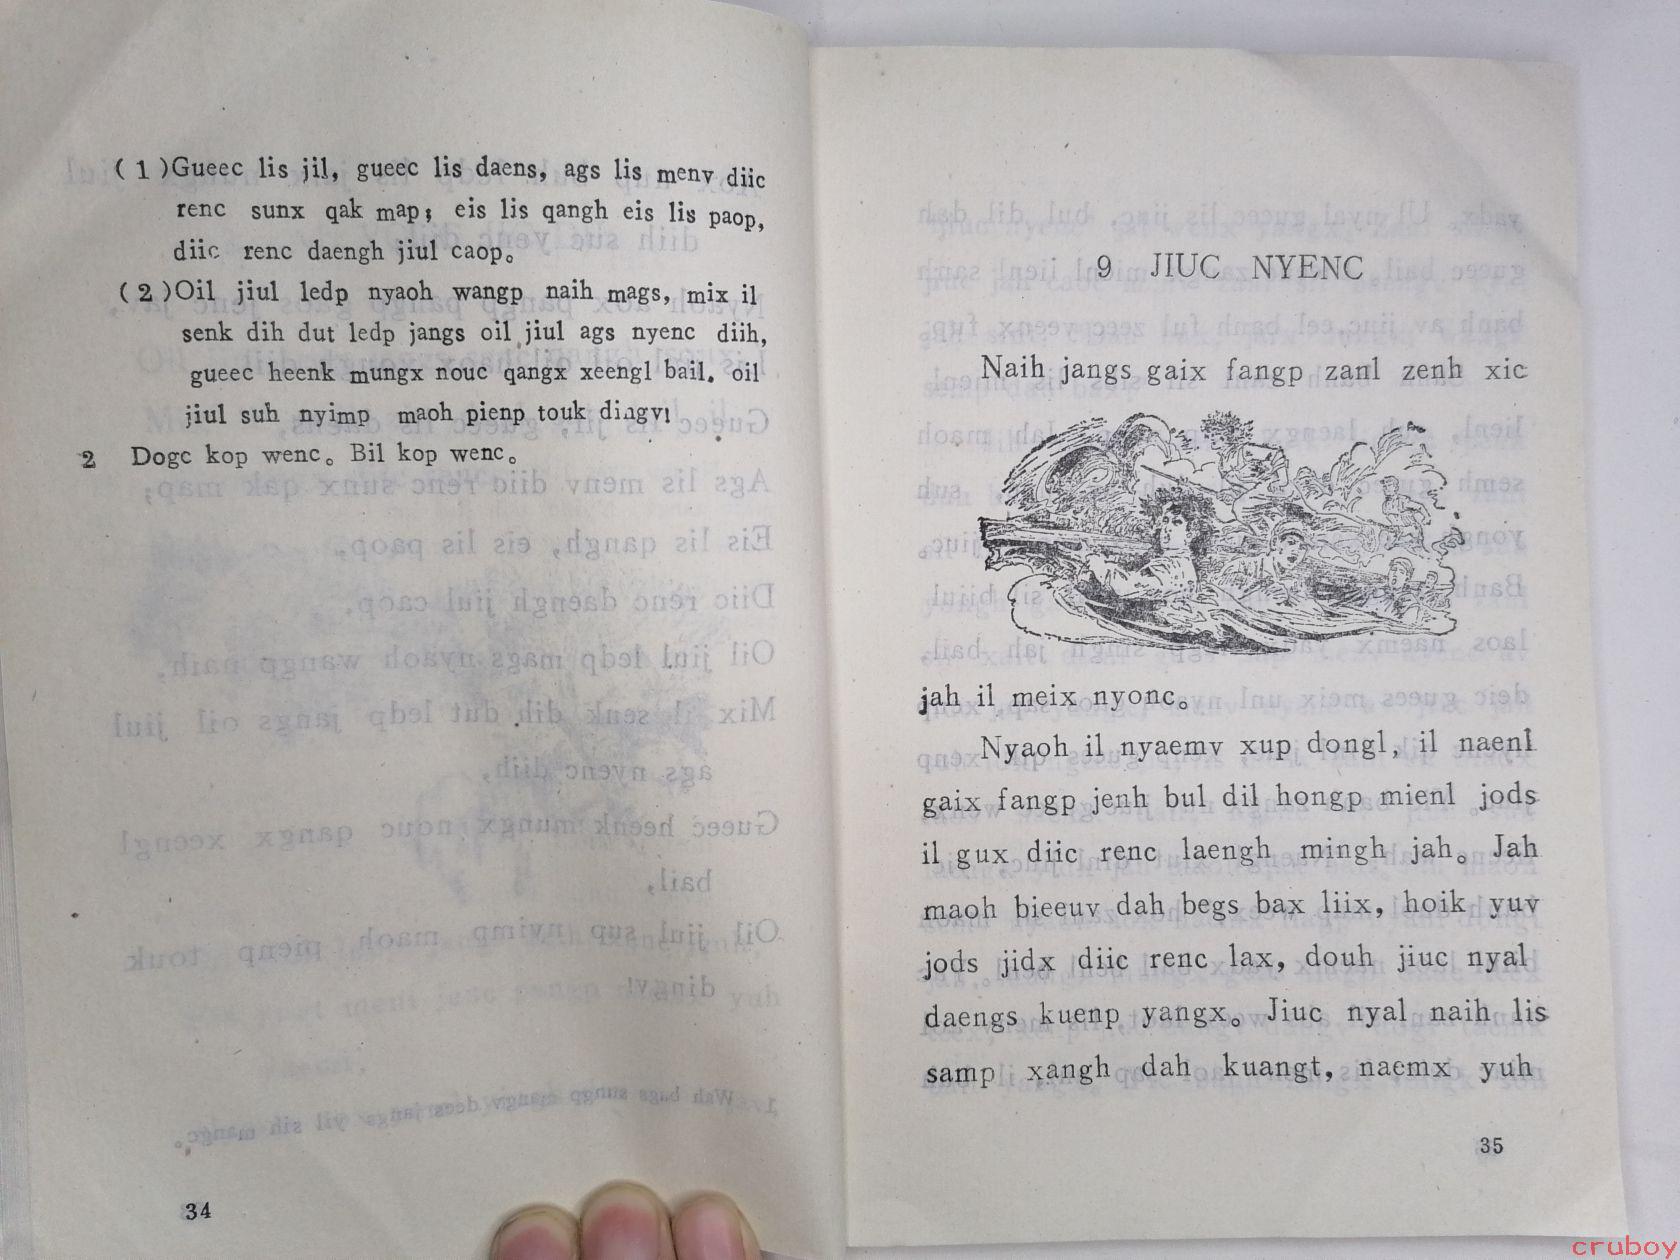 ( 1 )Gueec lis jil, gueec lis daens, ags lis menv diic
renc sunx qak map; eis lis qangh eis lis paop,
diic renc daengh jiul caop。
( 2 )Oil jiul ledp nyaoh wangp naih mags, mix il
senk dih dut ledp jangs oil jiul ags nyenc diih,
gueec heenk mungx nouc qangx xeengl bail. oil
jiul suh nyimp maoh pienp touk dingv!
2 Dogc kop wenc。Bil kop wenc。
34
9 JIUC NYENC
Naih jangs gaix fangp zanl zenh xic
jah il meix nyonc。
Nyaoh il nyaemv xup dongl, il naenl
gaix fangp jenh bul dil hongp mienl jods
il gux diic renc laengh mingh jah。Jah
maoh bieeuv dah begs bax liix, hoik yuv
jods jidx diic renc lax, douh jiuc nyal
daengs kuenp yangx。Jiuc nyal naih lis
samp xangh dah kuangt, naemx yuh
35
cruboy